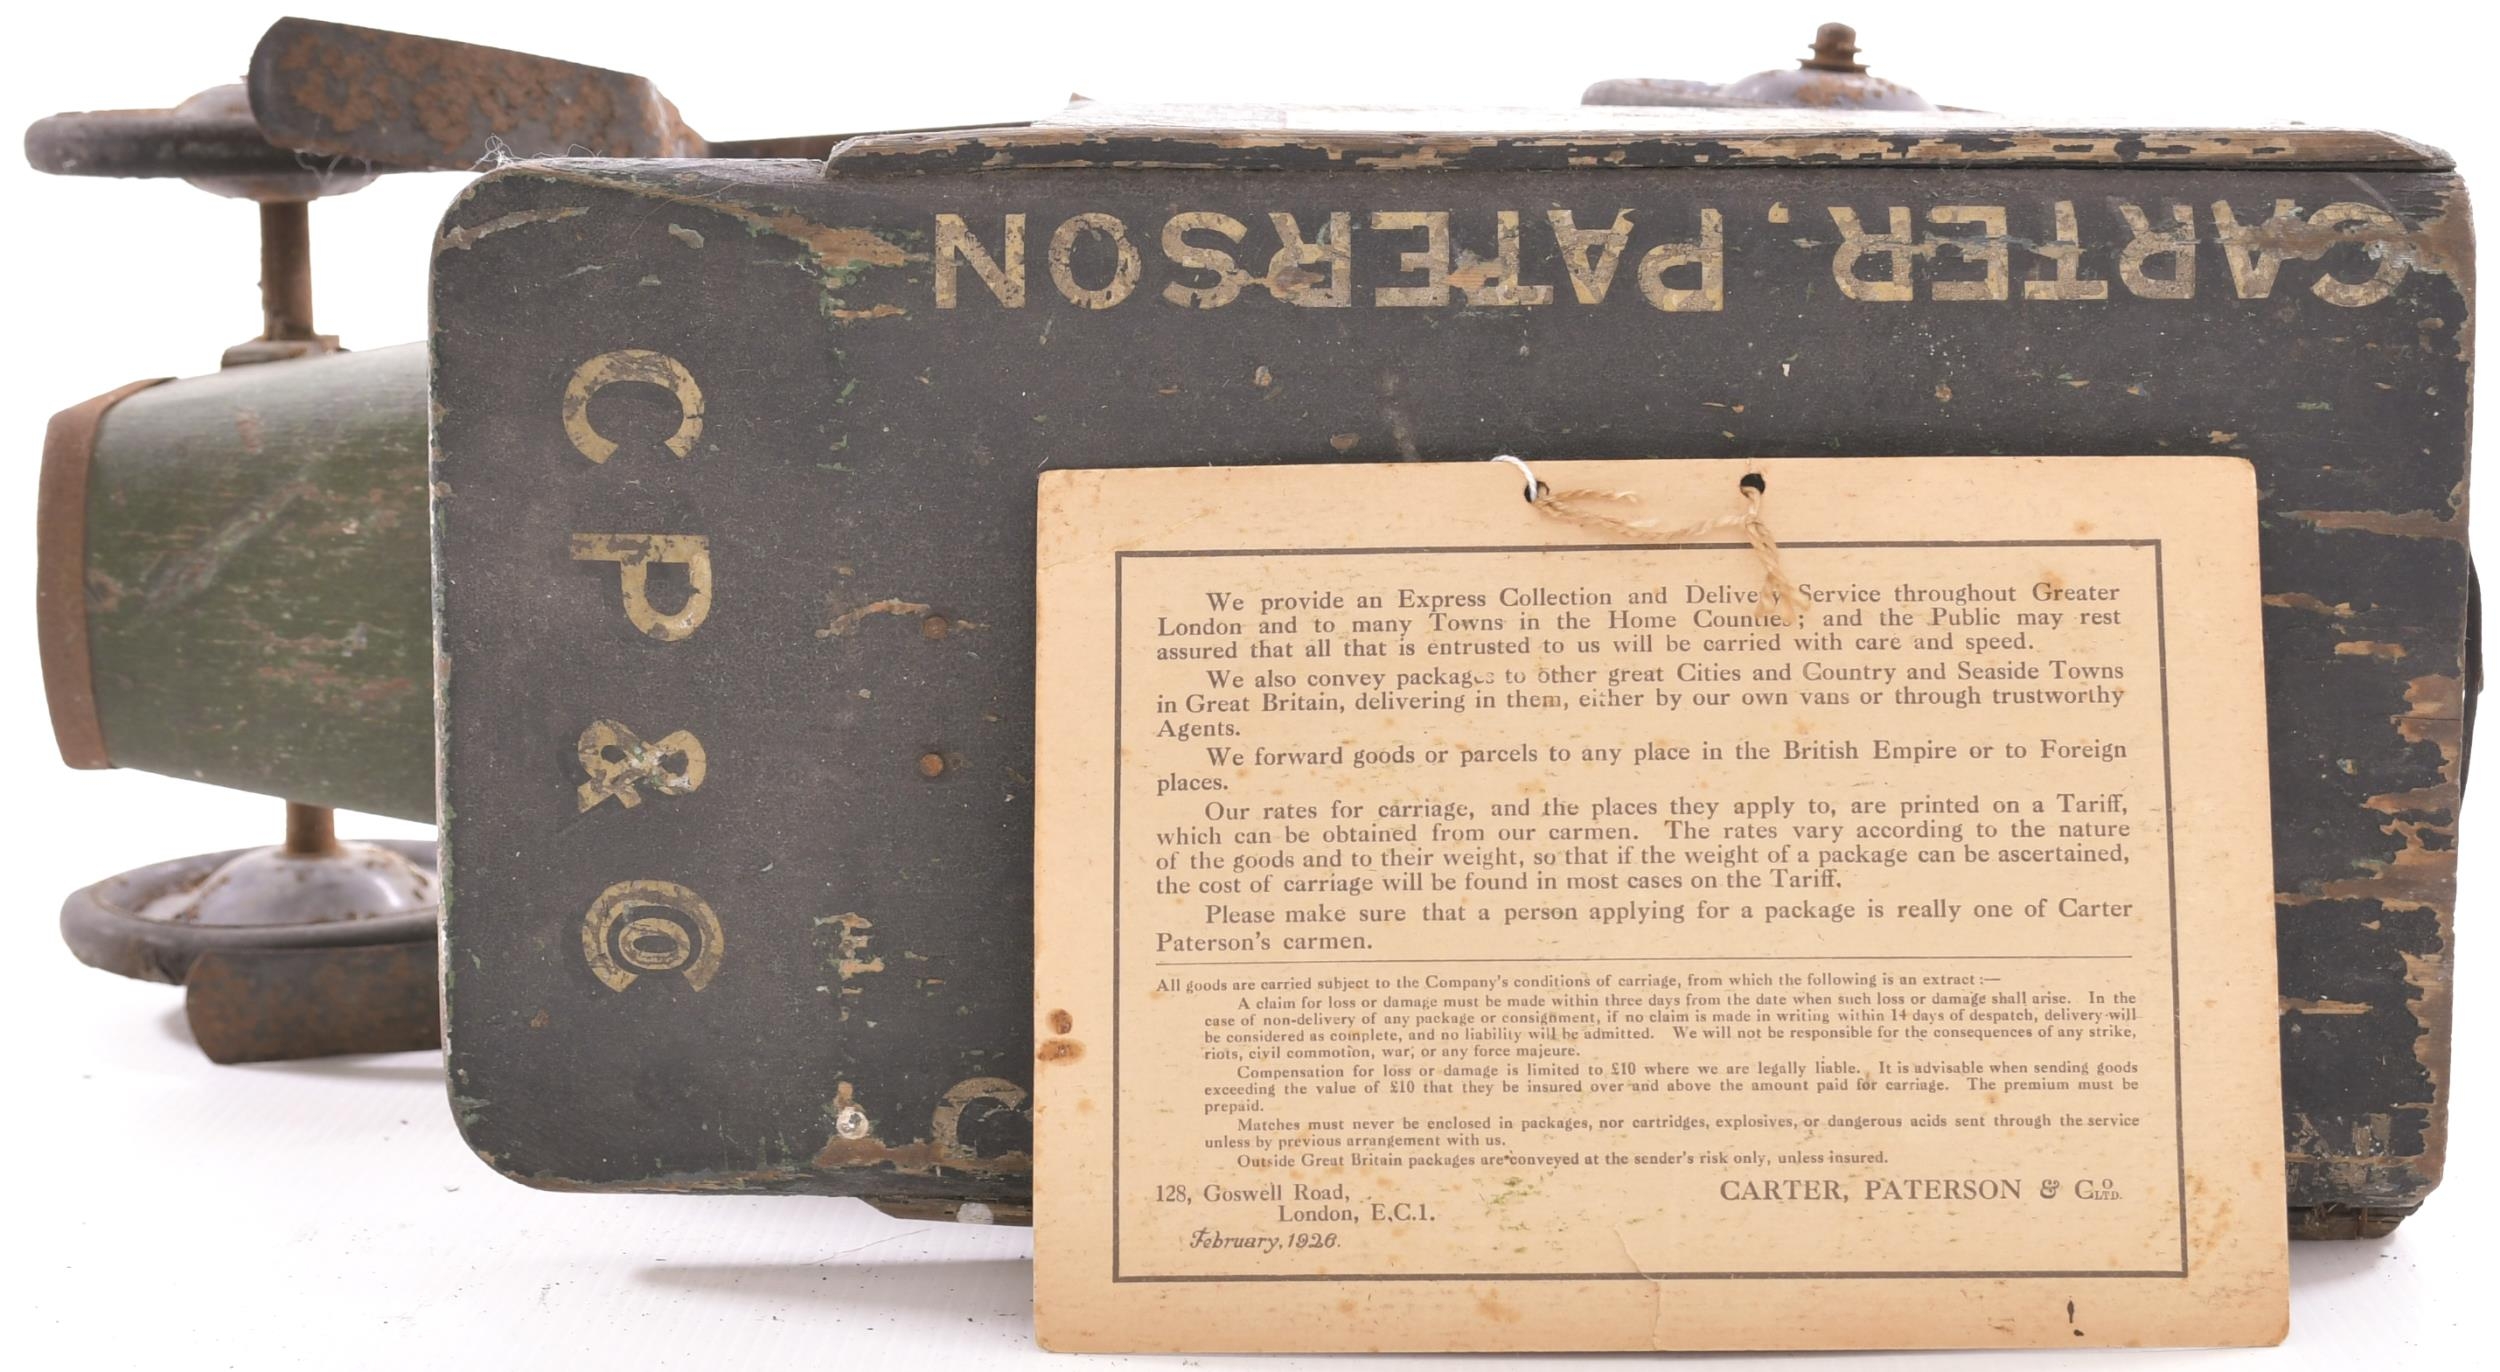 CARTER, PATERSON
C P & Co
We provide an Express Collection and Delivery Service throughout Greater
London and to many Towns in the Home Counties; and the Public may rest
assured that all that is entrusted to us will be carried with care and speed.
We also convey packages to other great Cities and Country and Seaside Towns
in Great Britain, delivering in them, either by our own vans or through trustworthy
Agents.
We forward goods or parcels to any place in the British Empire or to Foreign
places.
Our rates for carriage, and the places they apply to, are printed on a Tariff,
which can be obtained from our carmen. The rates vary according to the nature
of the goods and to their weight, so that if the weight of a package can be ascertained,
the cost of carriage will be found in most cases on the Tariff.
Please make sure that a person applying for a package is really one of Carter
Paterson's carmen.
All goods are carried subject to the Company's conditions of carriage, from which the following is an extract :—
A claim for loss or damage must be made within three days from the date when such loss or damage shall arise. In the
case of non-delivery of any package or consignment, if no claim is made in writing within 14 days of despatch, delivery will
be considered as complete, and no liability will be admitted. We will not be responsible for the consequences of any strike,
riots, civil commotion, war, or any force majeure.
Compensation for loss or damage is limited to £10 where we are legally liable. It is advisable when sending goods
exceeding the value of £10 that they be insured over and above the amount paid for carriage. The premium must be
prepaid.
Matches must never be enclosed in packages, nor cartridges, explosives, or dangerous acids sent through the service
unless by previous arrangement with us.
Outside Great Britain packages are conveyed at the sender's risk only, unless insured.
128, Goswell Road,
London, E.C.1.
CARTER, PATERSON & Co LTD.
February, 1926.